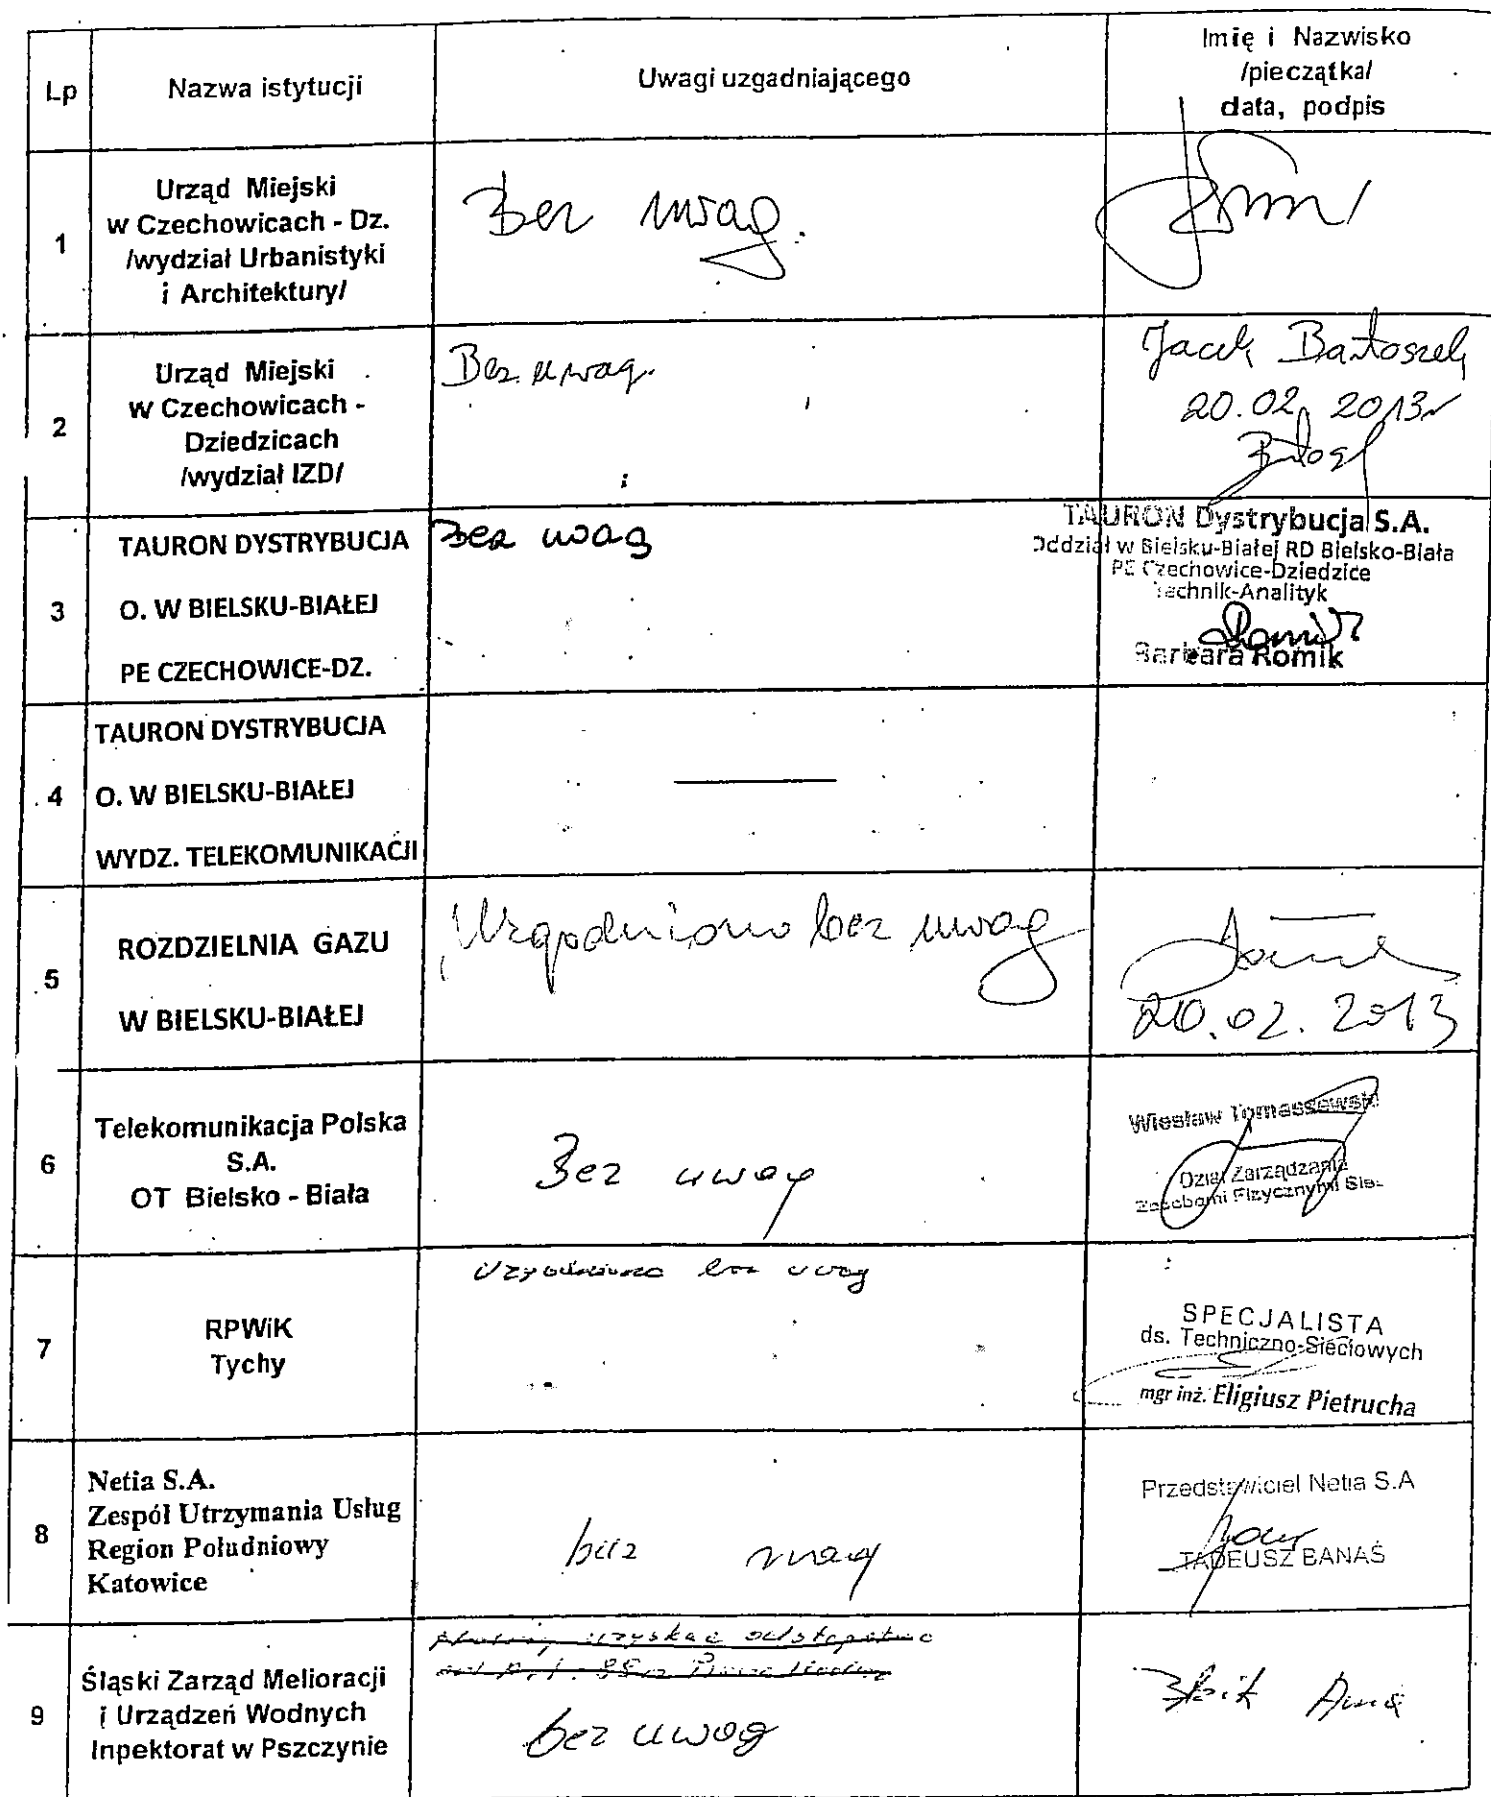 Lp
Nazwa istytucji
Uwagi uzgadniającego
Imię i Nazwisko
/pieczątka/
data, podpis
1
Urząd Miejski
w Czechowicach - Dz.
/wydział Urbanistyki
i Architektury/
Bez uwag.
2
Urząd Miejski
w Czechowicach -
Dziedzicach
/wydział IZD/
Bez uwag.
Jacek Bartoszek
20.02.2013r
3
TAURON DYSTRYBUCJA
O. W BIELSKU-BIAŁEJ
PE CZECHOWICE-DZ.
Bez uwag
TAURON Dystrybucja S.A.
Oddział w Bielsku-Białej RD Bielsko-Biała
PE Czechowice-Dziedzice
Technik-Analityk
Barbara Romik
4
TAURON DYSTRYBUCJA
O. W BIELSKU-BIAŁEJ
WYDZ. TELEKOMUNIKACJI
5
ROZDZIELNIA GAZU
W BIELSKU-BIAŁEJ
Uzgodniono bez uwag
20.02.2013
6
Telekomunikacja Polska
S.A.
OT Bielsko - Biała
Bez uwag
Wiesław Tomaszewski
Dział Zarządzania
Zasobami Fizycznymi Sieci
7
RPWiK
Tychy
Uzgodniono bez uwag
SPECJALISTA
ds. Techniczno-Sieciowych
mgr inż. Eligiusz Pietrucha
8
Netia S.A.
Zespół Utrzymania Usług
Region Południowy
Katowice
bez uwag
Przedstawiciel Netia S.A
TADEUSZ BANAŚ
9
Śląski Zarząd Melioracji
i Urządzeń Wodnych
Inpektorat w Pszczynie
uzyskać odstępstwo
bez uwag